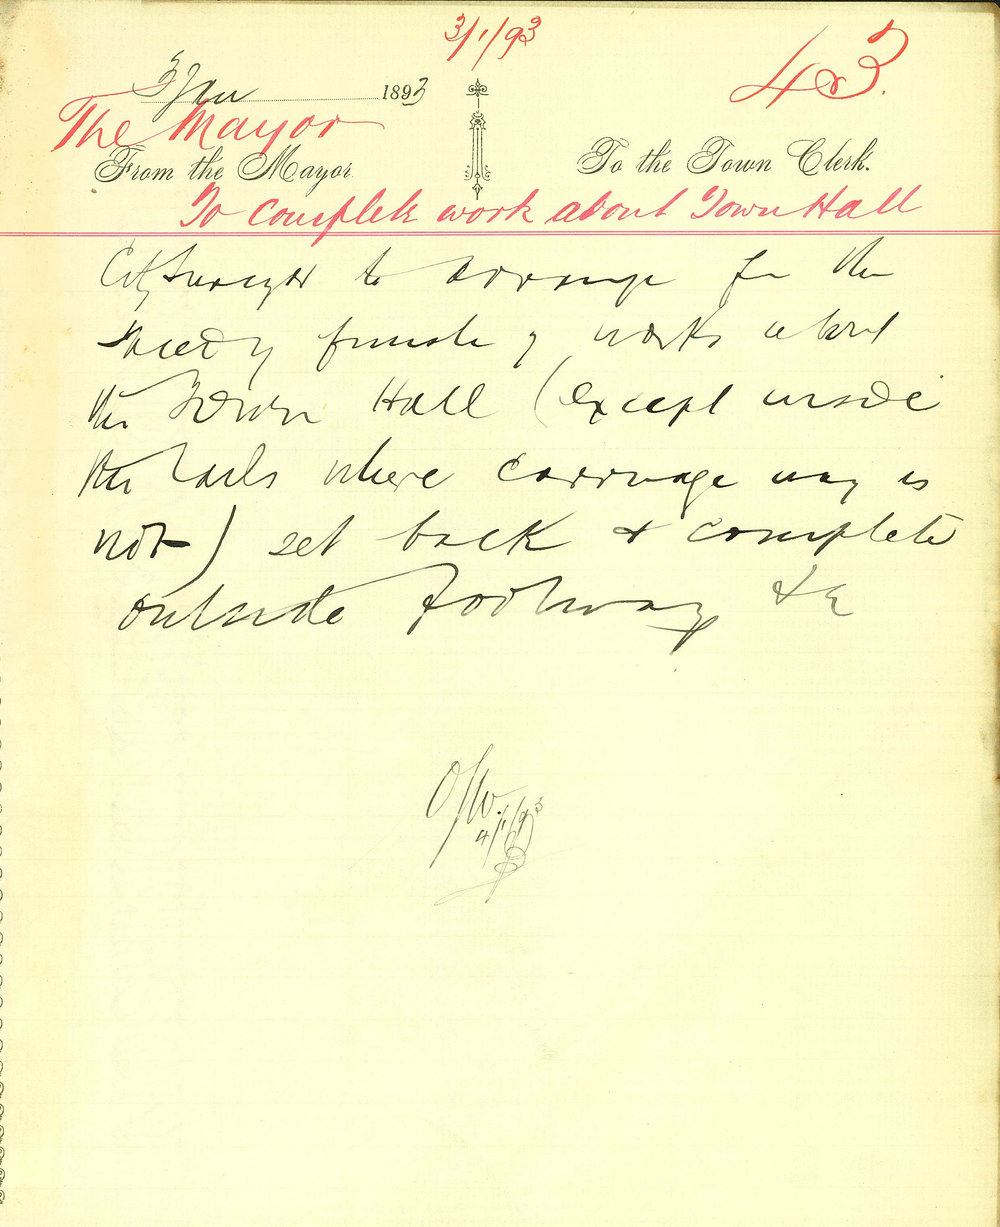 3/1/93
43.
3 Jan 1893
The Mayor
From the Mayor
To the Town Clerk.
To complete work about Town Hall
City to arrange for the
speedy finish of works about
the Town Hall (except inside
the rails where carriage way is
not) set back & complete
outside footway &c
4/1/93